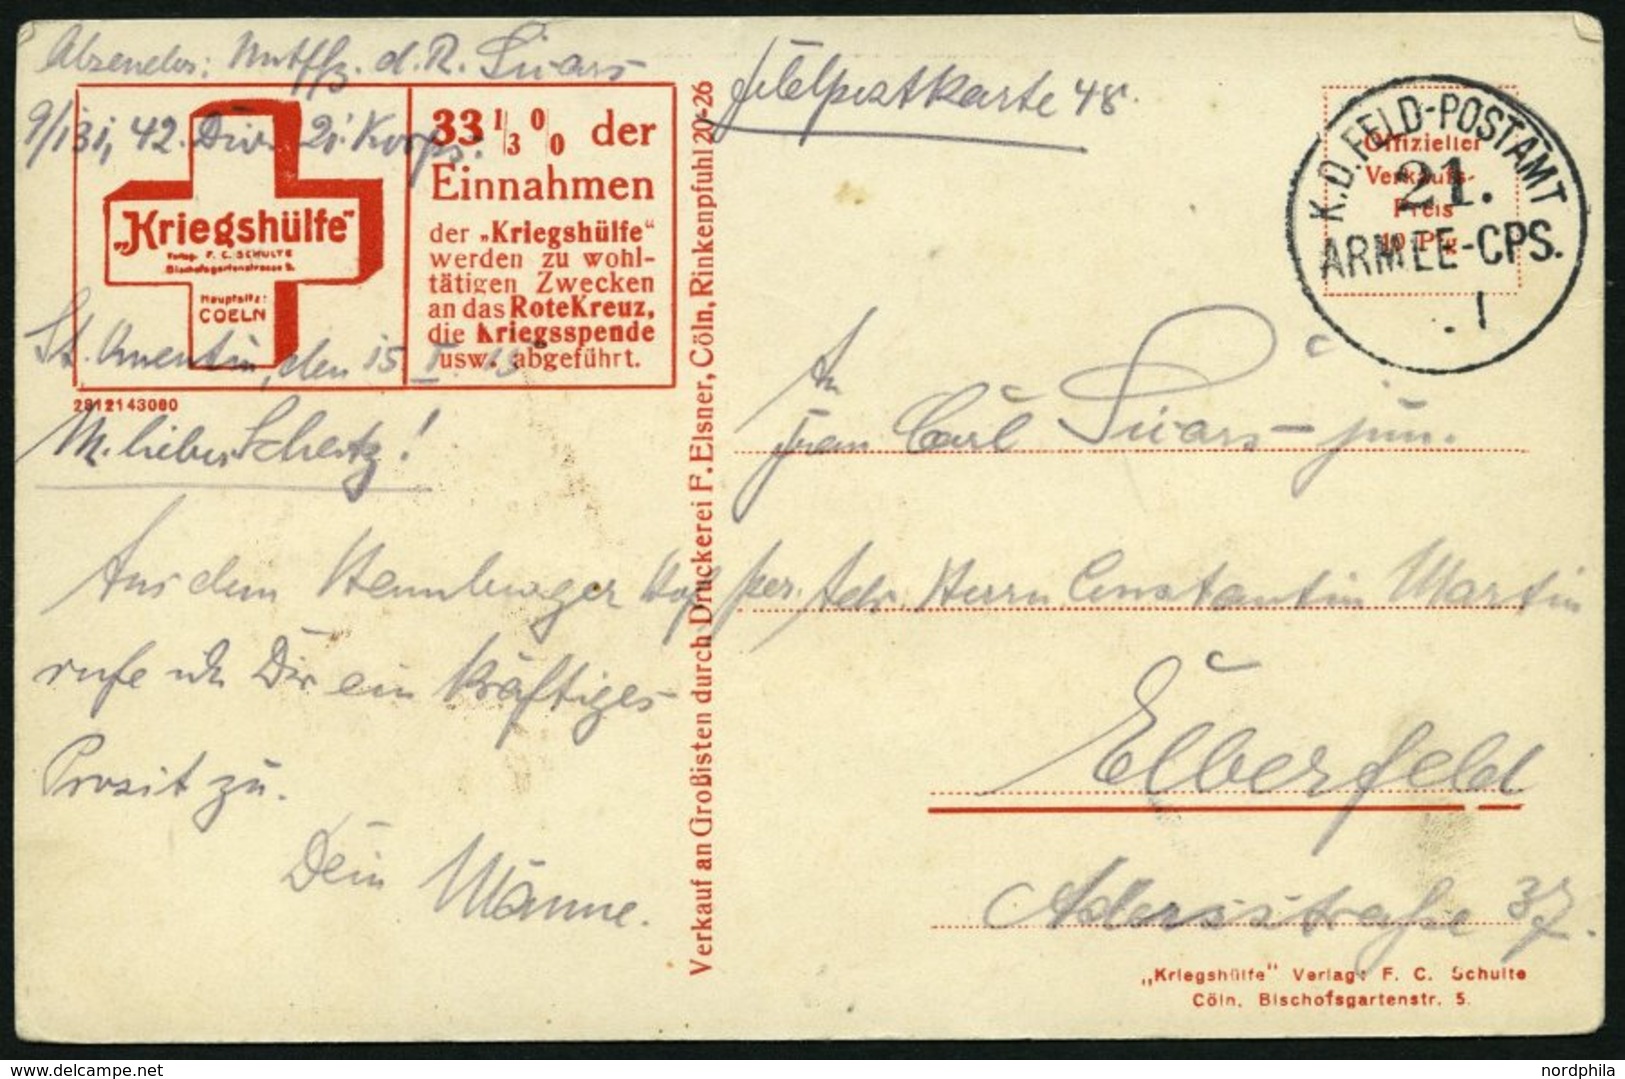 Absender: Untffz. d. R. Suars
9/131, 42. Div. 21. Korps.
Feldpostkarte 48.
„Kriegshülfe"
Verlag: F. C. SCHULTE
Bischofsgartenstrasse 5.
Hauptsitz:
COELN
33 1/3 0/0 der
Einnahmen
der „Kriegshülfe"
werden zu wohl-
tätigen Zwecken
an das Rote Kreuz,
die Kriegsspende
usw. abgeführt.
2812143080
Verkauf an Großisten durch Druckerei F. Elsner, Cöln, Rinkenpfuhl 20-26
Offizieller
Verkaufs-
Preis
10 Pfg.
K.D. FELD-POSTAMT
21.
ARMEE-CPS.
St. Quentin, den 15. I. 15
M. lieber Schatz!
Aus dem
rufe ich Dir ein kräftiges
Prosit zu.
Dein Männe.
An
Frau Carl Suars jun.
per. Adr. Herrn Constantin Martin
Elberfeld
Adersstraße 37.
„Kriegshülfe" Verlag: F. C. Schulte
Cöln, Bischofsgartenstr. 5.
nordphila.com
nordphila